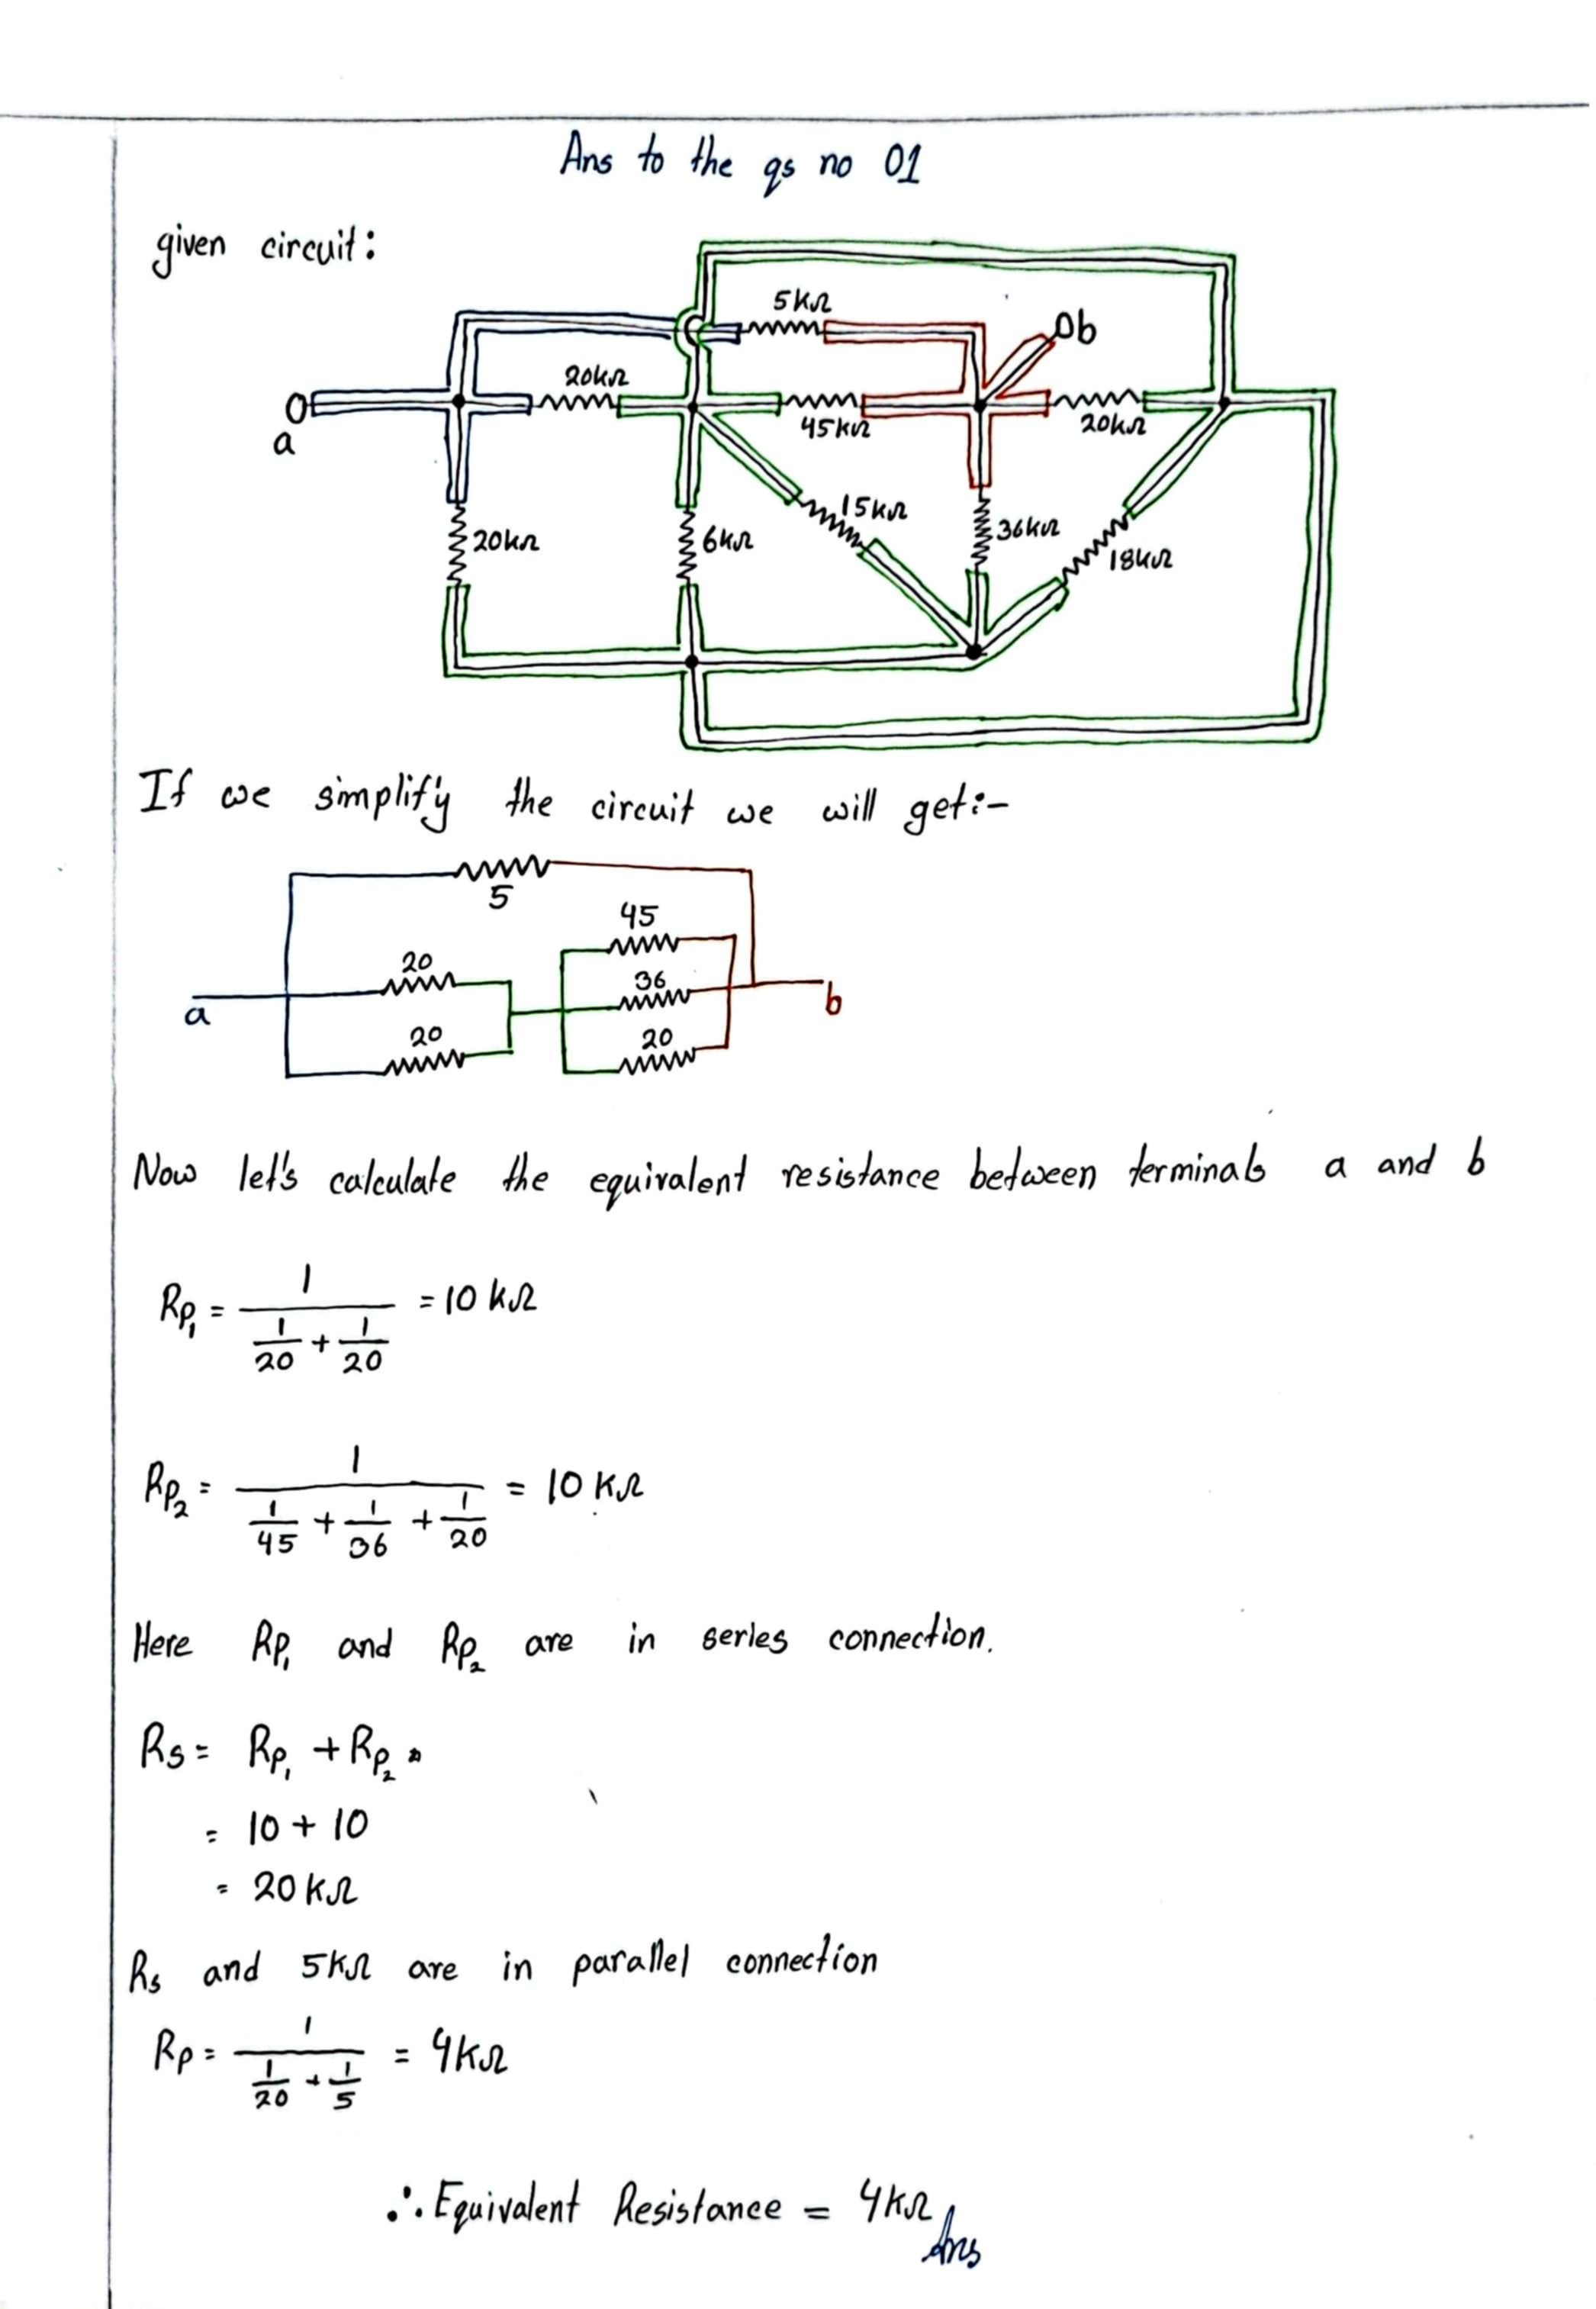 Ans to the qs no 01
given circuit:
5kΩ
b
20kΩ
a
45kΩ
20kΩ
15kΩ
36kΩ
20kΩ
6kΩ
18kΩ
If we simplify the circuit we will get:-
5
45
20
36
a
b
20
20
Now let's calculate the equivalent resistance between terminals a and b
Rp₁ = 1 / (1/20 + 1/20) = 10 kΩ
Rp₂ = 1 / (1/45 + 1/36 + 1/20) = 10 kΩ
Here Rp₁ and Rp₂ are in series connection.
Rs = Rp₁ + Rp₂
= 10 + 10
= 20 kΩ
Rs and 5kΩ are in parallel connection
Rp = 1 / (1/20 + 1/5) = 4kΩ
∴ Equivalent Resistance = 4kΩ
Ans